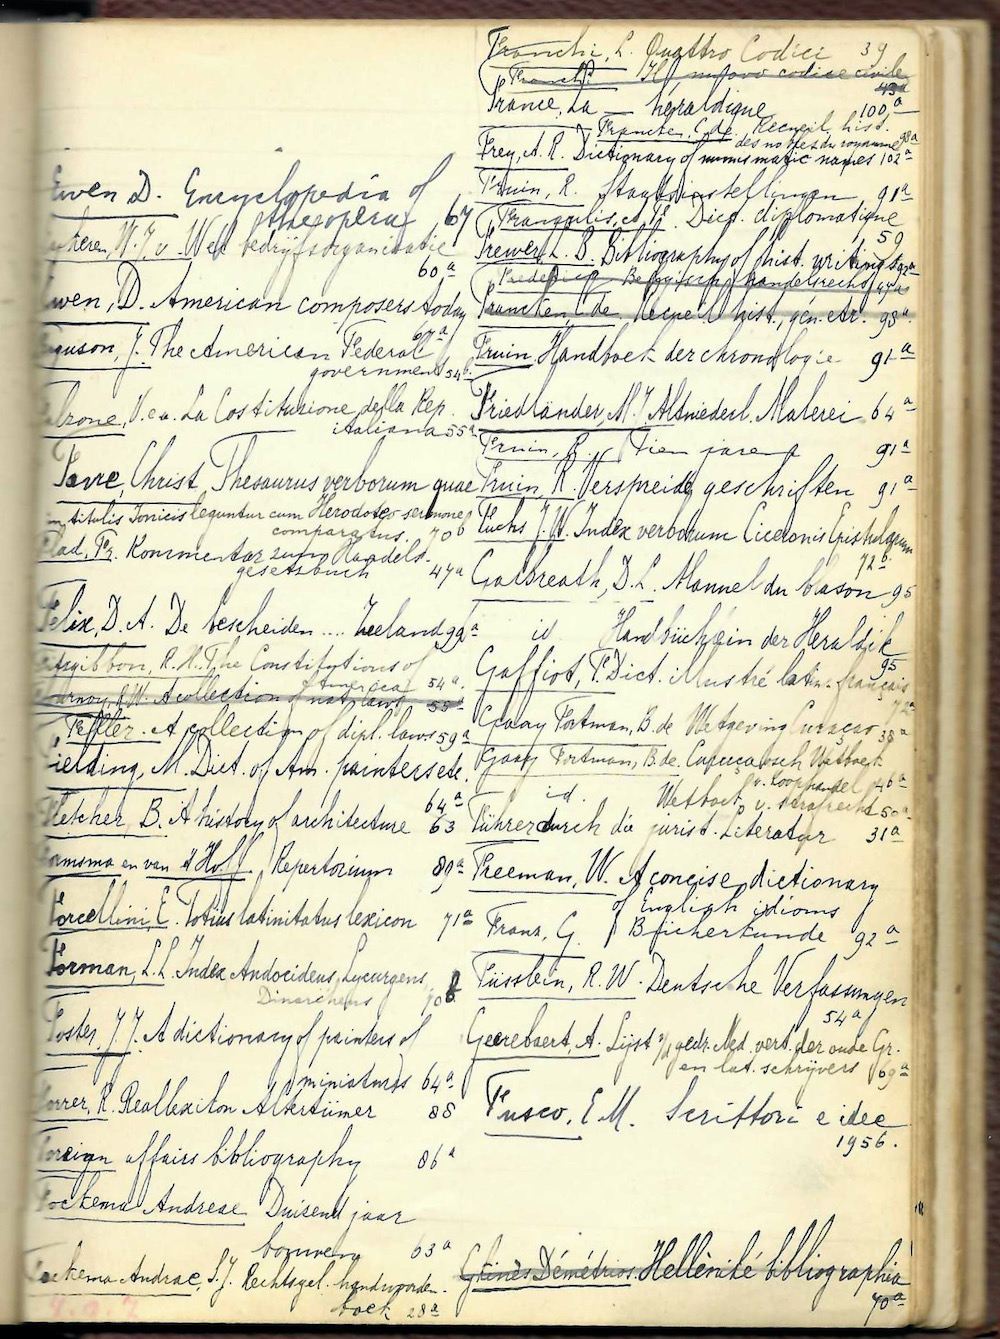 Ewen D. Encyclopedia of
the opera 67
W. J. v. Web bedrijfsorganisatie
60a
Ewen, D. American composers today
67a
Ferguson, J. The American Federal
government 54b
Falzone, V. e.a. La Costituzione della Rep.
italiana 55a
Favre, Christ. Thesaurus verborum quae
in titulis Ionicis leguntur cum Herodoteo sermone
comparatus. 70b
Flad, Fr. Kommentar zum Handels-
gesetzbuch 47a
Felix, D. A. De bescheiden .... Zeeland 99a
Fitzgibbon, R. H. The Constitutions of
America 54a
A collection of nat. laws 55a
Feller. A collection of dipl. laws 59a
Fielding, M. Dict. of Am. painters etc.
64a
Fletcher, B. A history of architecture 63
Formsma en van 't Hoff. Repertorium 89a
Forcellini, E. Totius latinitatus lexicon 71a
Forman, L. L. Index Andocideus, Lycurgeus,
Dinarcheus 70b
Foster, J. J. A dictionary of painters of
miniatures 64a
Forrer, R. Reallexikon Altertümer 88
Foreign affairs bibliography 86a
Fockema Andreae Duizend jaar
bouwen 63a
Fockema Andreae, S. J. Rechtsgel. handwoorden-
boek 28a
Franchi, L. Quattro Codici 39
Franchi. Il nuovo codice civile
43a
France, La — héraldique 100a
Francken, C. de. Recueil hist.
des nobles du royaume 98a
Frey, A. R. Dictionary of numismatic names 102a
Fruin, R. Staatsinstellingen 91a
Frangulis, A. F. Dict. diplomatique
59
Frewer, L. B. Bibliography of hist. writings 92a
Fredericq Belgisch handelsrecht 47a
Francken, C. de Recueil hist., gén. etr. 98a
Fruin Handboek der chronologie 91a
Friedländer, M. J. Altniederl. Malerei 64a
Fruin, R. Tien jaren 91a
Fruin, R. Verspreide geschriften 91a
Fuchs J. W. Index verborum Ciceronis Epistularum
72b
Galbreath, D. L. Manuel du blason 95
id Handbüchlein der Heraldik
95
Gaffiot, F. Dict. illustré latin-français
72a
Gaay Fortman, B. de Wetgeving Curaçao 38a
Gaay Fortman, B. de. Curaçaosch Wetboek
v. Koophandel 46a
id. Wetboek v. strafrecht 50a
Führer durch die jurist. Literatur 31a
Freeman, W. A concise dictionary
of English idioms
Franz, G. Bücherkunde 92a
Füsslein, R. W. Deutsche Verfassungen
54a
Geerebaert, A. Lijst v/d gedr. Ned. vert. der oude Gr.
en lat. schrijvers 69a
Fusco, E. M. Scrittori e idee
1956.
Ghinès Démétrios. Hellènikè bibliographia
70a